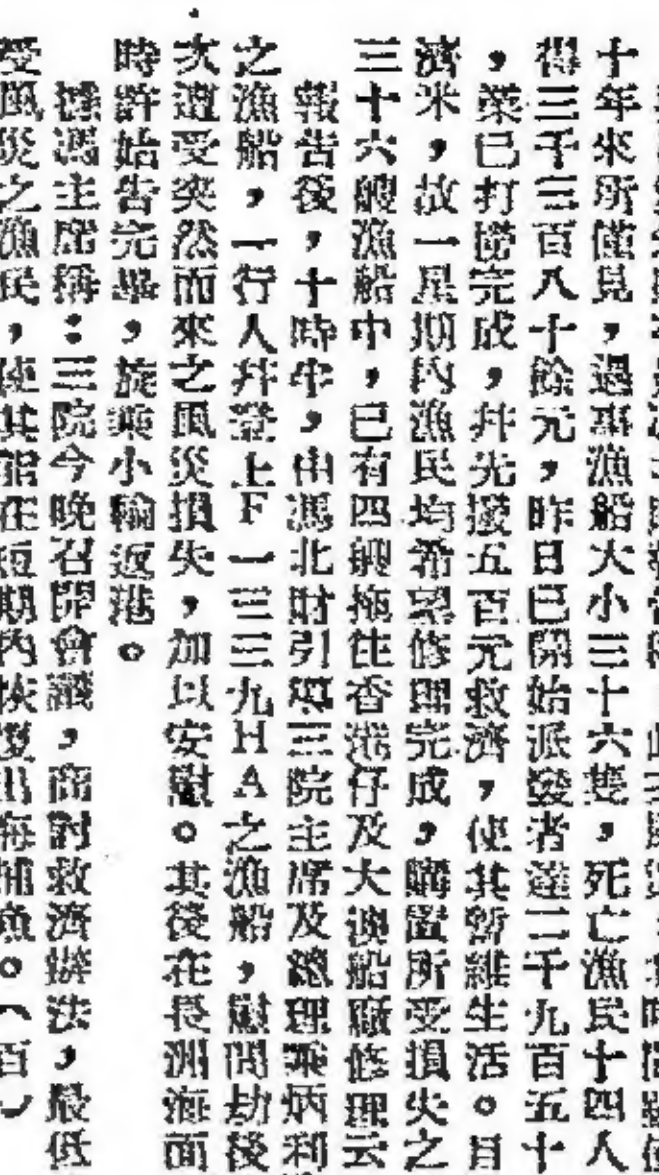 十年來所僅見，過事漁船大小三十六隻，死亡漁民十四人
得三千三百八十餘元，昨日已開始派發者達二千九百五十
，業已打撈完成，幷先撥五百元救濟，使其暫維生活。目
濟米，故一星期內漁民均希望修理完成，購置所受損失之
三十六艘漁船中，已有四艘拖往香港仔及大澳船廠修理云
報告後，十時半，由馮北財引導三院主席及總理乘炳利
之漁船，一行人幷登上F一三三九HA之漁船，慰問劫後
次遭受突然而來之風災損失，加以安慰。其後在長洲海面
時許始告完畢，旋乘小輪返港。
據馮主席稱：三院今晚召開會議，商討救濟辦法，最低
受風災之漁民，使其能在短期內恢復出海捕魚。（百）